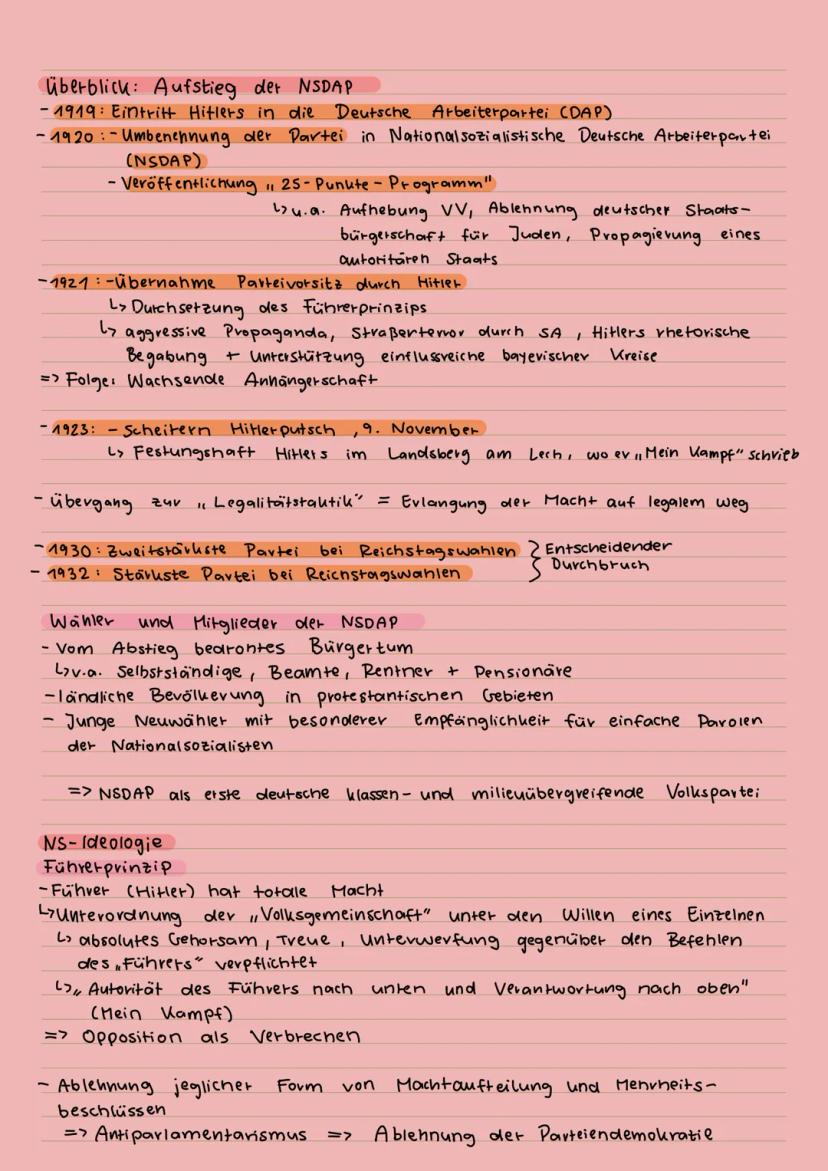 Überblick: Aufstieg der NSDAP
- 1919: Eintritt Hitlers in die Deutsche Arbeiterpartei (DAP)
- 1920: - Umbenennung der Partei in Nationalsozialistische Deutsche Arbeiterpartei
(NSDAP)
- Veröffentlichung „25-Punkte-Programm"
↳ u.a. Aufhebung VV, Ablehnung deutscher Staats-
bürgerschaft für Juden, Propagierung eines
autoritären Staats
- 1921: - Übernahme Parteivorsitz durch Hitler
↳ Durchsetzung des Führerprinzips
↳ aggressive Propaganda, Straßerterror durch SA, Hitlers rhetorische
Begabung + Unterstützung einflussreiche bayerischer Kreise
=> Folge: Wachsende Anhängerschaft
- 1923: - Scheitern Hitlerputsch, 9. November
↳ Festungshaft Hitlers im Landsberg am Lech, wo er „Mein Kampf" schrieb
- Übergang zur „Legalitätstaktik" = Erlangung der Macht auf legalem Weg
- 1930: Zweitstärkste Partei bei Reichstagswahlen } Entscheidender
- 1932: Stärkste Partei bei Reichstagswahlen } Durchbruch
Wähler und Mitglieder der NSDAP
- Vom Abstieg bedrohtes Bürgertum
↳ v.a. Selbstständige, Beamte, Rentner + Pensionäre
- ländliche Bevölkerung in protestantischen Gebieten
- Junge Neuwähler mit besonderer Empfänglichkeit für einfache Parolen
der Nationalsozialisten
=> NSDAP als erste deutsche klassen- und milieuübergreifende Volkspartei
NS-Ideologie
Führerprinzip
- Führer (Hitler) hat totale Macht
↳ Unterordnung der „Volksgemeinschaft" unter den Willen eines Einzelnen
↳ absolutes Gehorsam, Treue, Unterwerfung gegenüber den Befehlen
des „Führers" verpflichtet
↳ „Autorität des Führers nach unten und Verantwortung nach oben"
(Mein Kampf)
=> Opposition als Verbrechen
- Ablehnung jeglicher Form von Machtaufteilung und Mehrheits-
beschlüssen
=> Antiparlamentarismus => Ablehnung der Parteiendemokratie